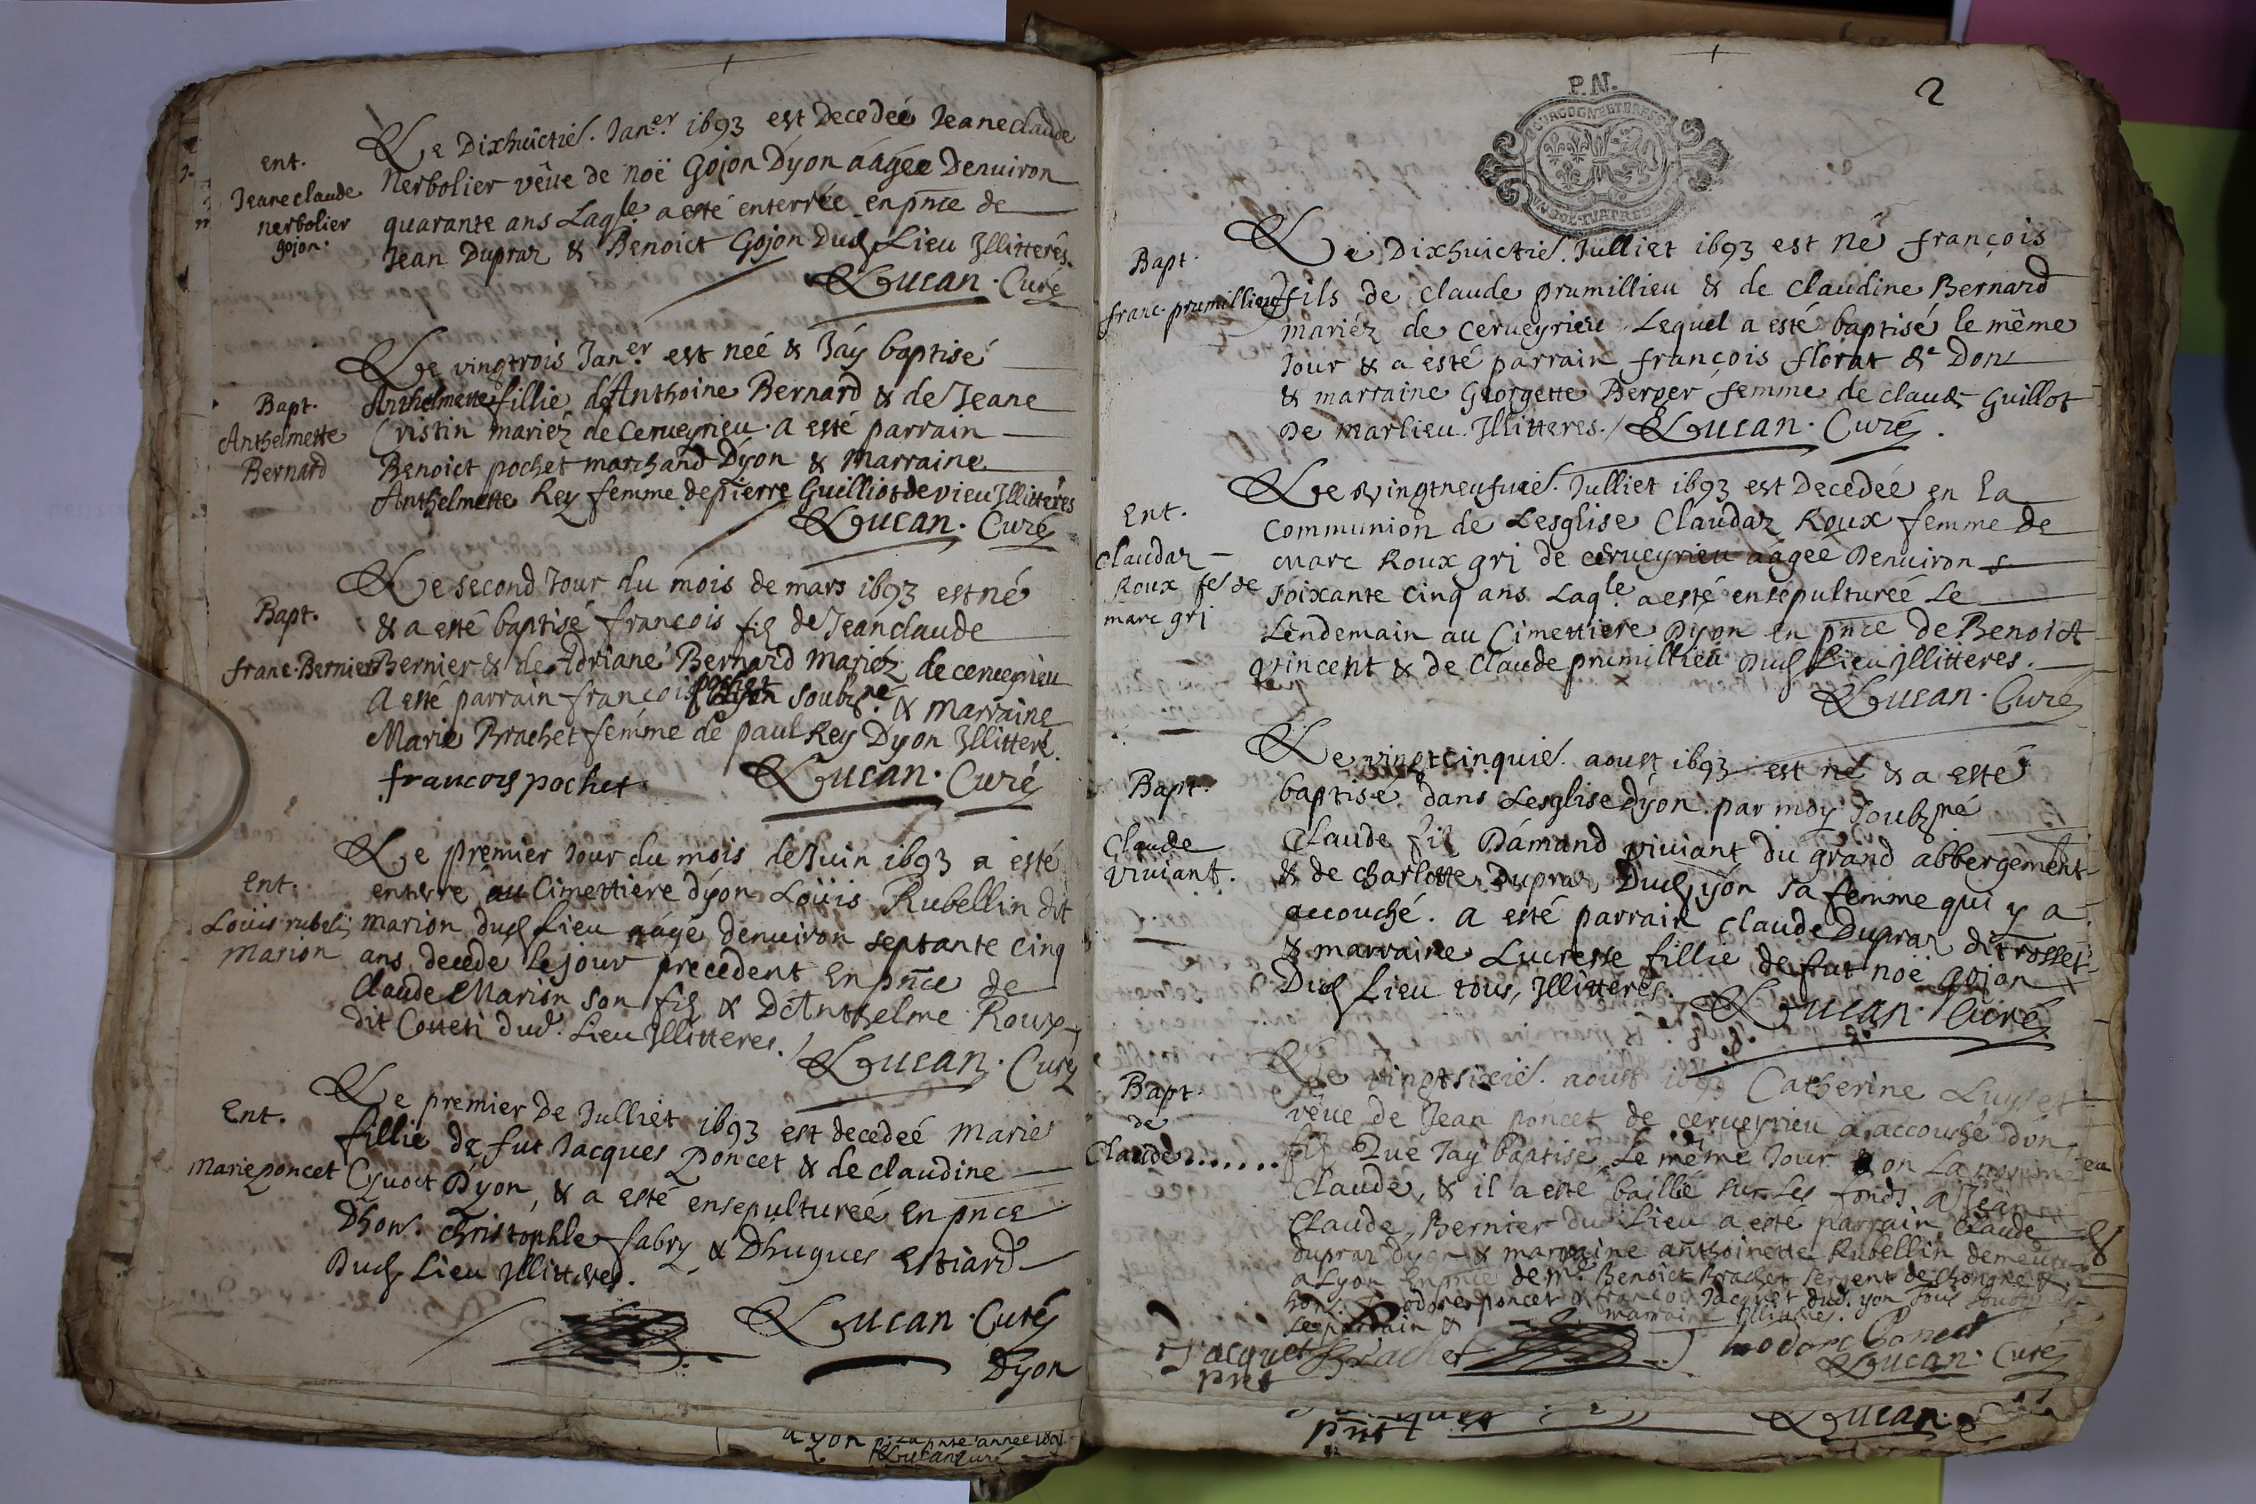 Ent.
Jeane claude
nerbolier
gojon.
Le Dixhuictie. Janer. 1693 est Decedeé Jeane claude
Nerbolier vêue de noë Gojon Dyon aagée Denuiron
quarante ans Laqle. a esté enterrée en pnce de
Jean Dupraz & Benoict Gojon Dud Lieu Illitterés.
Lucan. Curé
Bapt.
Anthelmette
Bernard
Le vingtrois Janer est neé & Jáy baptisé
Anthelmette fillie dAnthoine Bernard & de Jeane
Cristin mariéz de Cerueyrieu. a esté parrain
Benoict pochet marchand Dyon & Marraine
Anthelmette Rey femme de pierre Guilliot de vieu Illitterés
Lucan. Curé
Bapt.
franc. Bernier
Le second Jour du mois de mars 1693 est né
& a esté baptisé francois fiz de Jeanclaude
Bernier & de Adriane Bernard Mariéz de cerueyrieu
A esté parrain francois soubsne & Marraine
Marie Brachet femme de paul Rey Dyon Illitteré.
francois pochet
Lucan. Curé
Ent.
Louis rubeli
Marion
Le premier Jour du mois de Juin 1693 a esté
enterré au Cimettiere dyon Loüis Rubellin dit
Marion dud Lieu aáyé denuiron septante cinq
ans decede le jour precedent En pnce de
Claude Marion son fiz & DAnthelme Roux
dit Cotteti dud. Lieu Illitteres.
Lucan. Curé
Ent.
Marie poncet
Le premier De Julliet 1693 est decedeé Marie
fillie de fut Jacques Poncet & de claudine
Dyon, & a esté ensepulturée En pnce
Dhon. christophle fabry & Dhugues Estiard
Dud Lieu Illitterés.
Lucan. Curé
Dyon
P.N.
2
Bapt.
franc. prumillieu
Le Dixhuictie. Julliet 1693 est Né françois
fils de Claude prumillieu & de Claudine Bernard
mariéz de Cerueyrieu Lequel a esté baptisé le même
Jour & a esté parrain françois florat de Don
& marraine Georgette Berger femme de claude Guillot
De Marlieu. Illitteres. Lucan. Curé.
Ent.
Claudaz
Roux fe de
marc gri
Le vingtneufuie. Julliet 1693 est Decedée en La
Communion de Lesglise Claudaz Roux femme de
Marc Roux gri de cerueyrieu aagee Denuiron
soixante cinq ans Laqle. a esté ensépulturée Le
Lendemain au Cimettiere Dyon En pnce de Benoict
vincent & de Claude prumillieu Dud Lieu Illitteres.
Lucan. Curé
Bapt.
Claude
viuiant.
Le vingtcinquie. aoust 1693 est né & a esté
baptise dans Lesglise Dyon par moy soubsné
Claude fiz Damand viuiant du grand abbergement
& de Charlotte Dupraz Dud yon sa femme qui y a
accouché. a esté parrain Claude Dupraz dit rosset
& marraine Lucresse fillie de fut noë gojon
Dud Lieu tous Illitterés.
Lucan. Curé
Bapt.
de
Claude.......
Le vingtsixie. aoust 1693 Catherine
vêue de Jean poncet de cerueyrieu a accouché Dun
fiz Que Jay baptisé Le même Jour & on La nommé
Claude, & il a esté baillé sur Les fonds a Jean
Claude Bernier du Lieu a esté parrain Claude
dupraz Dyon & marraine anthoinette Rubellin demeurant
a Lyon En pnce de Mr. Benoict Brachet sergent de
poncet & francois Jacquet dud. yon
Le parrain & marraine Illitteres.
Jacquet Brachet
pnt
poncet
Lucan. Curé
pnt
Lucan.